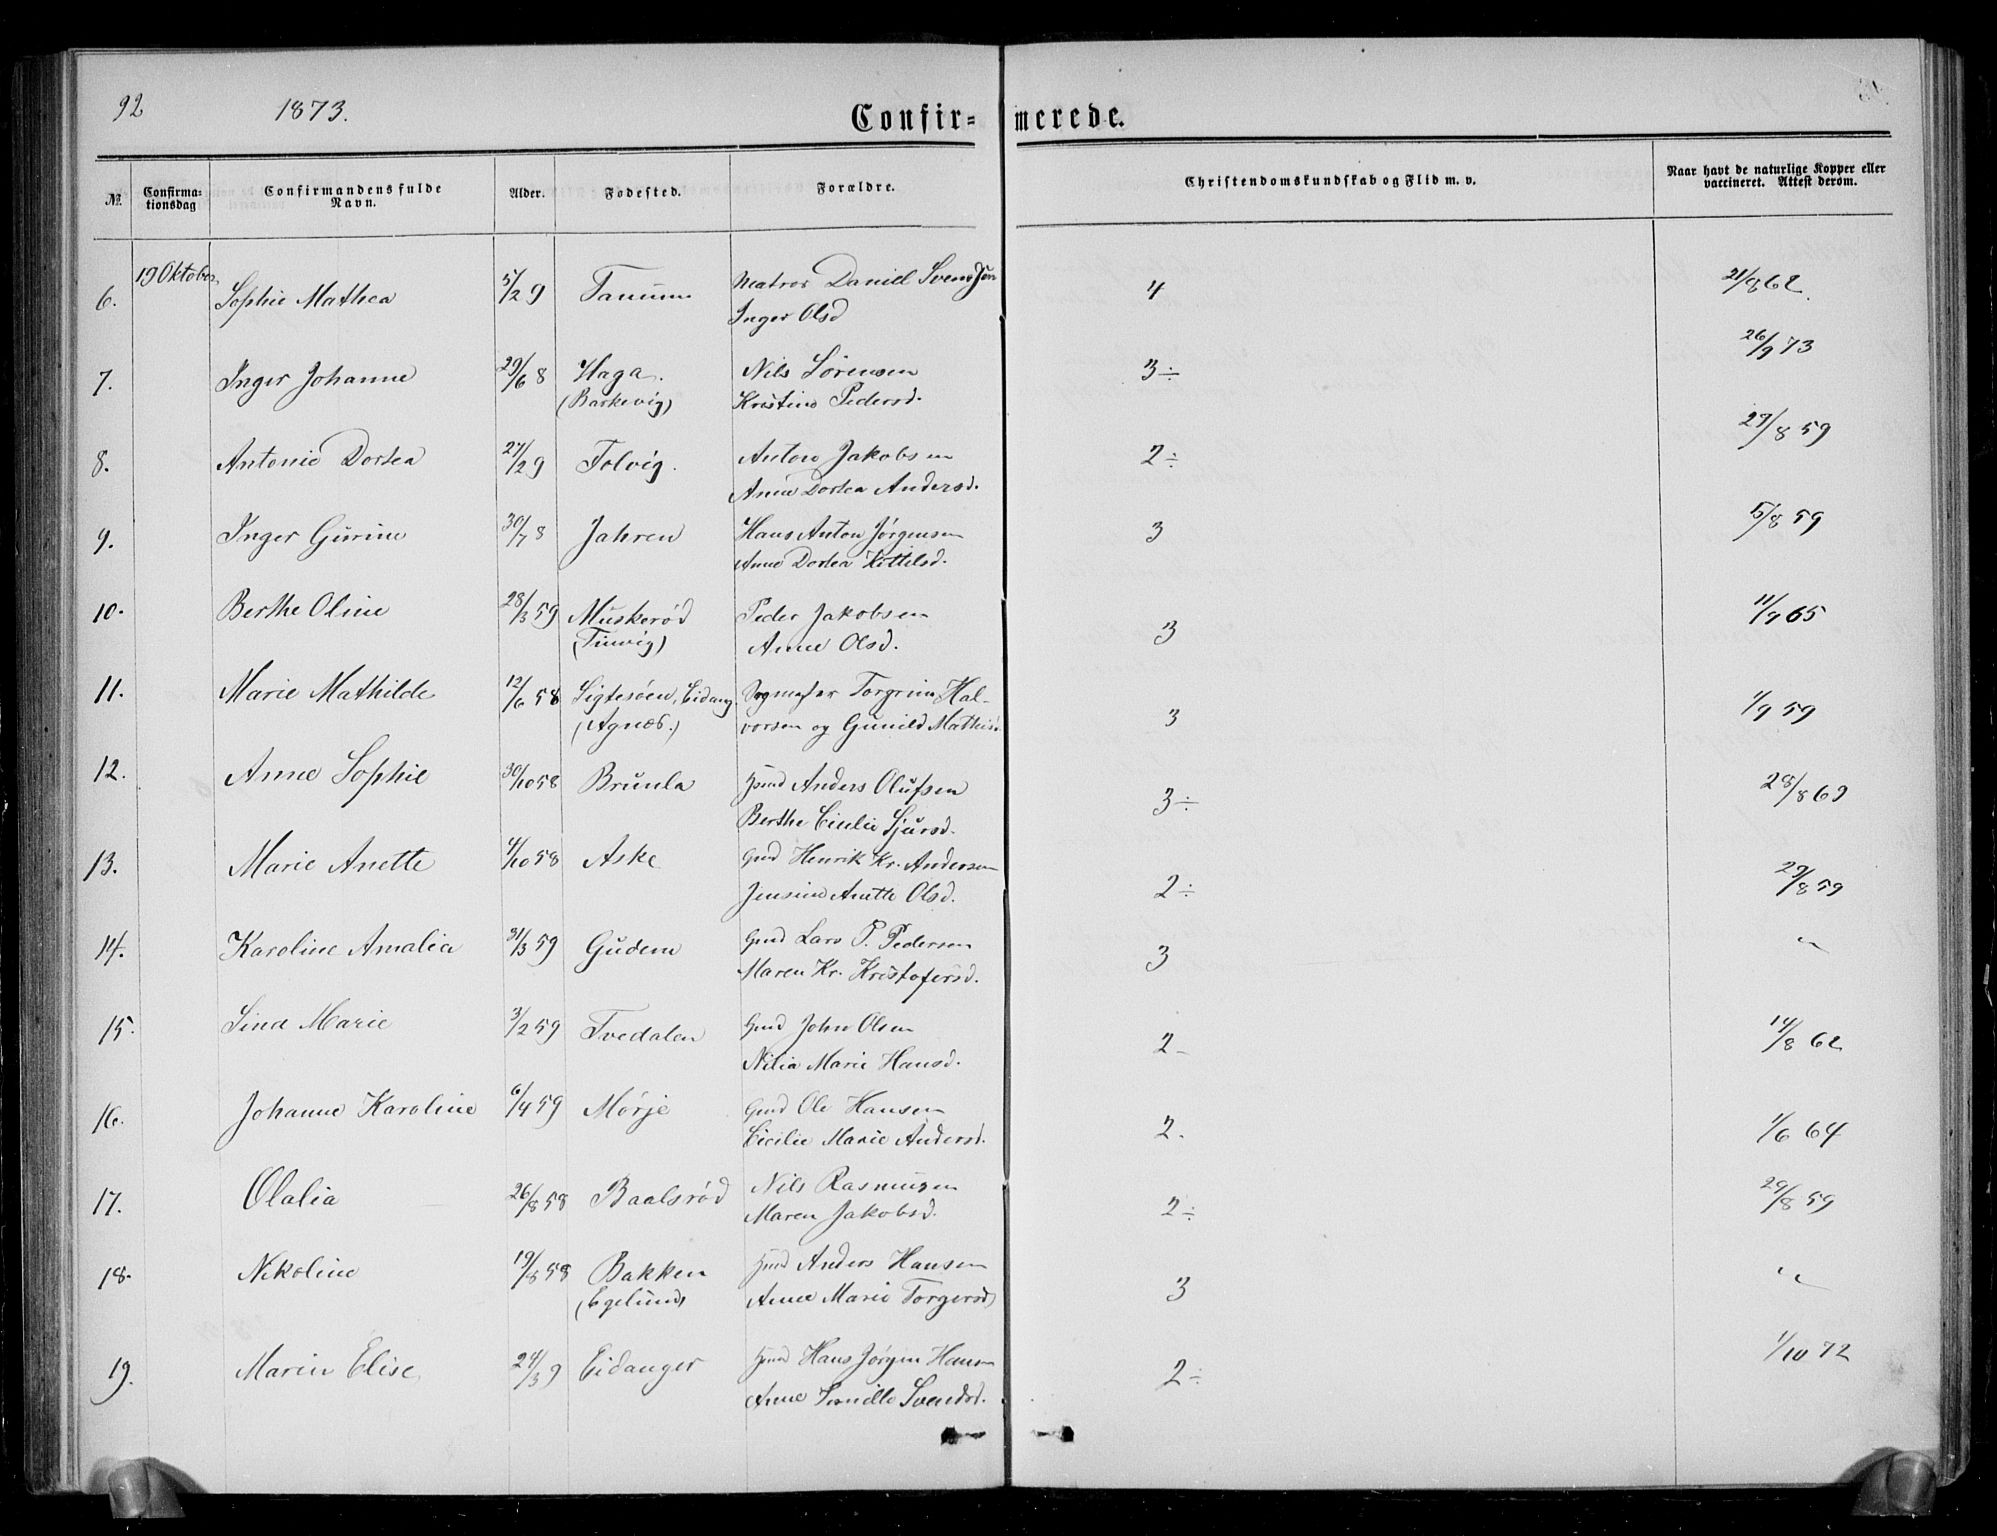 92
1873.
Confir- merede.
№
Confirma-
tionsdag
Confirmandens fulde
Navn.
Alder.
Fødested.
Forældre.
Christendomskundskab og Flid m. v.
Naar havt de naturlige Kopper eller
vaccineret. Attest derom.
6. 19 Oktober Sophie Mathea 5/2 9 Tanum Matros Daniel Svensen 4 21/8 62.
Inger Olsd
7. Inger Johanne 29/6 8 Haga. Nils Sørensen 3÷ 26/9 73
(Barkevig) Kristine Pedersd.
8. Antonie Dortea 27/2 9 Folvig. Anton Jakobsen 2÷ 27/8 59
Anne Dortea Andersd.
9. Inger Gurine 30/7 8 Jahren Hans Anton Jørgensen 3 5/8 59
Anne Dortea Kittilsd.
10. Berthe Oline 28/3 59 Muskerød Peder Jakobsen 3 11/9 65
(Tinvig) Anne Olsd.
11. Marie Mathilde 12/6 58 Ligtesøen, Eidang. Torgrim Hal- 3 1/9 59
(Agnes.) vorsen og Gunild Mathisd.
12. Anne Sophie 30/10 58 Brunla Hmd Anders Olufsen 3÷ 28/8 69
Berthe Cicilie Sjursd.
13. Marie Anette 4/10 58 Aske Gmd Henrik Kr. Andersen 2÷ 29/8 59
Jensine Anette Olsd.
14. Karoline Amalia 31/3 59 Gudem Gmd Lars P. Pedersen 3 "
Maren Kr. Kristofersd.
15. Lina Marie 3/2 59 Tvedalen Gmd John Olsen 2- 14/8 62
Nilia Marie Hansd.
16. Johanne Karoline 6/4 59 Mørje Gmd Ole Hansen 2. 1/6 64
Cicilie Marie Andersd.
17. Olalia 26/8 58 Baalsrød Nils Rasmusen 2÷ 29/8 59
Maren Jakobsd.
18. Nikoline 19/8 58 Bakken Hmd Anders Hansen 3 "
(Egelund) Anne Marie Torgersd
19. Maren Elise 24/3 9 Eidanger Hmd Hans Jørgen Hansen 2÷ 1/10 72
Anne Svendsd.